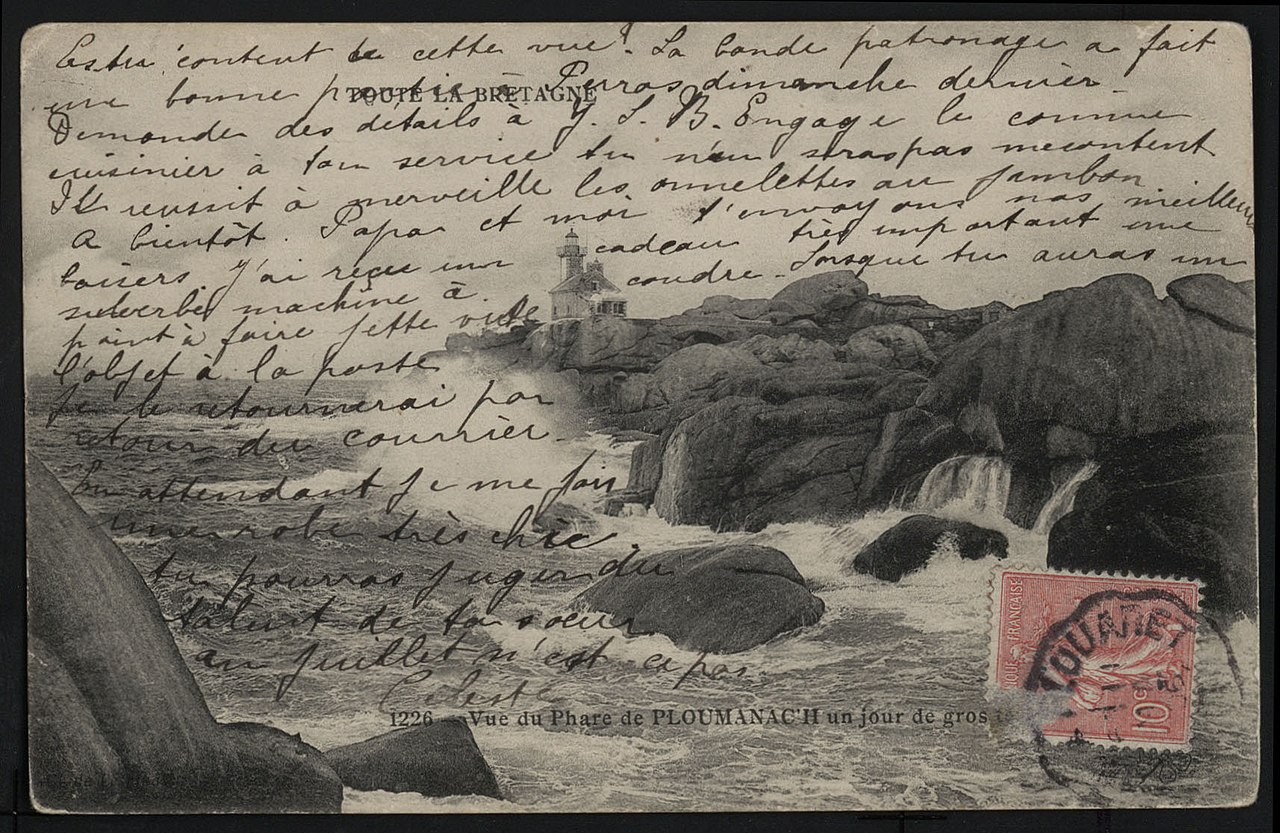 Estu content de cette vue? La bande patronage a fait
une bonne partie à Perros dimanche dernier.
TOUTE LA BRETAGNE
Demande des details à Y. S. B. Engage le comme
cuisinier à ton service tu n'en seras pas mecontent
Il reussit à merveille les omelettes au jambon
A bientôt. Papa et moi t'envoyons nos meilleurs
baisers. J'ai reçu un cadeau très important une
suberbe machine à coudre. Lorsque tu auras un
point à faire jette vide
l'objet à la poste
Je le retournerai par
retour du courrier.
En attendant je me fais
une robe très chic.
tu pourras juger du
talent de ta sœur
en juillet n'est ce pas.
Celeste
1226 - Vue du Phare de PLOUMANAC'H un jour de gros
FRANÇAISE
10c
PLOUARET